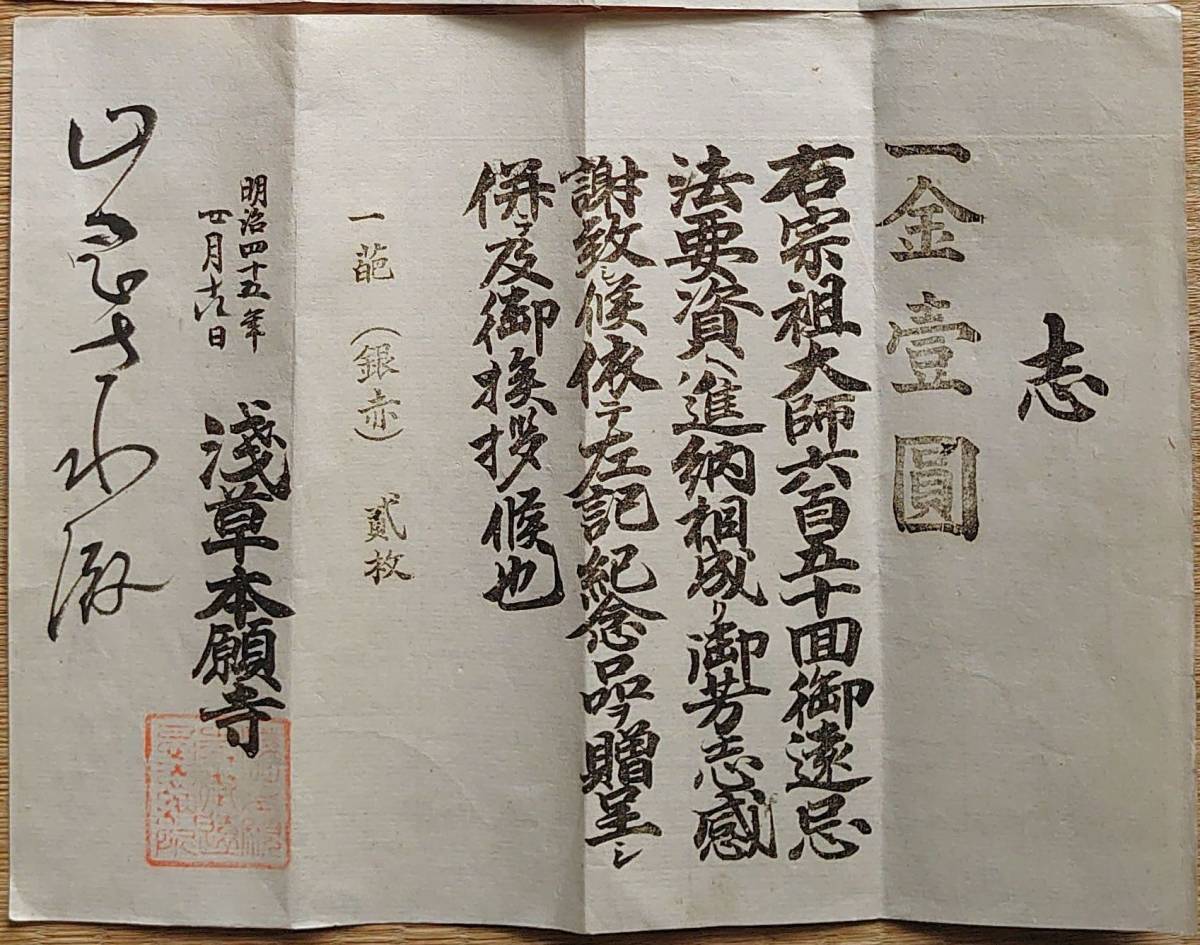 志
一金壹圓
右宗祖大師六百五十回御遠忌
法要資ヘ進納相成リ御芳志感
謝致シ候依テ左記紀念品ヲ贈呈シ
併テ及御挨拶候也
一葩（銀赤）貳枚
明治四十五年
四月 日
淺草本願寺
殿